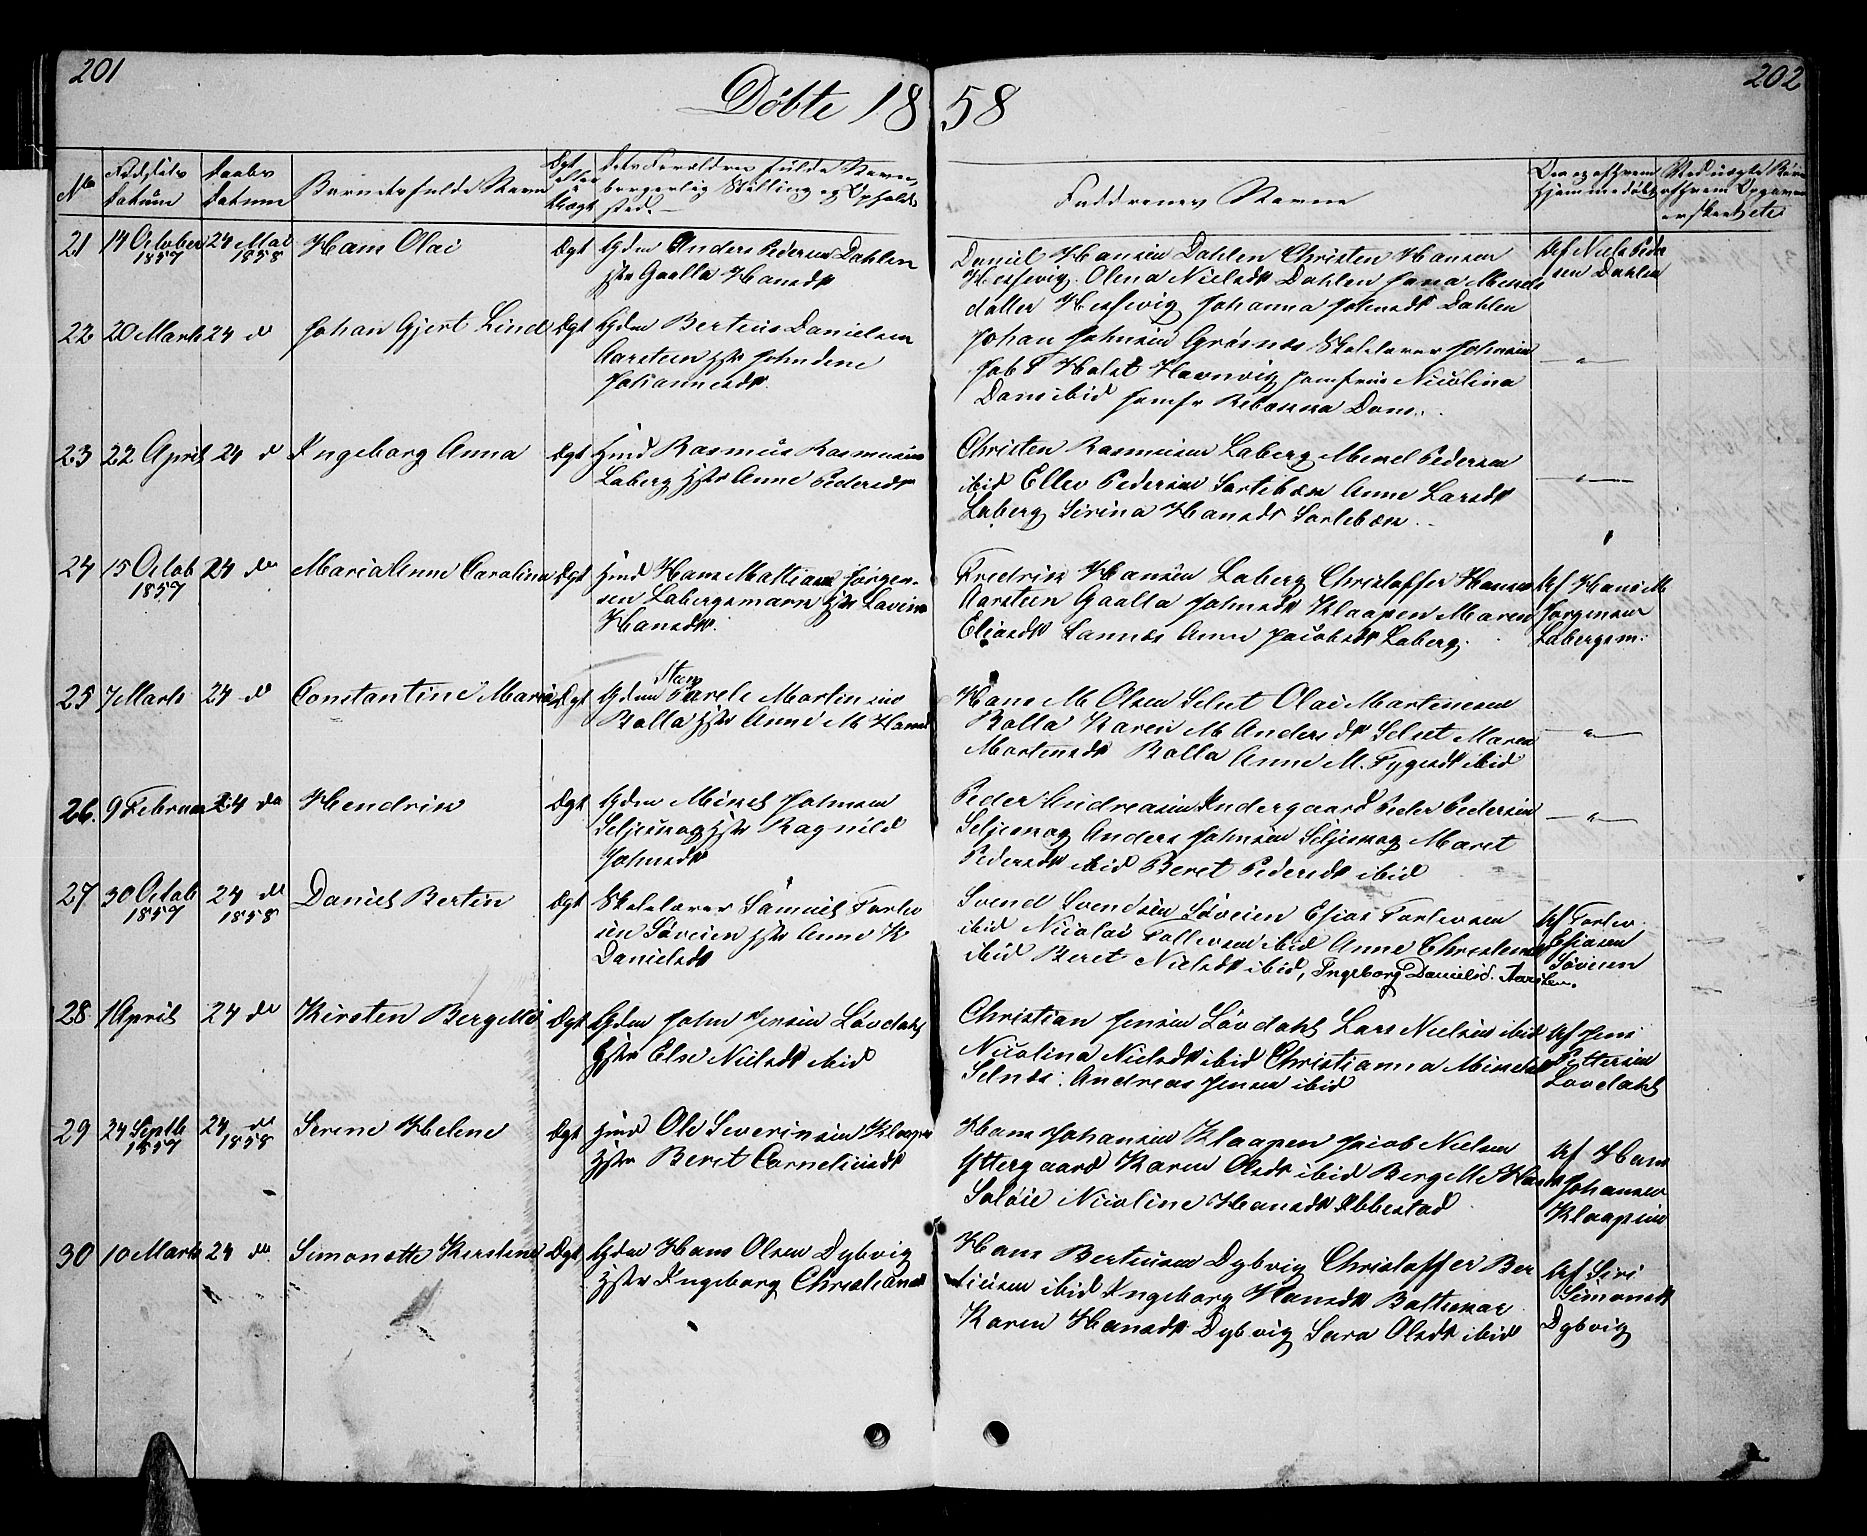 201
202
Döbte 1858
No Fødsels Datum Daabs Datum Barnets fulde Navn Ægt eller Uægt Dets Forældres fulde Navn, borgerlig Stilling og Opholdssted.
Faddrenes Navne
21 14 October 1857 24 Mai 1858 Hans Olai Ægt Gdm Anders Pedersen Dahlen
Hstr Gaella Hansdt
Daniel Hansen Dahlen Christen Hansen
Hessevig. Olena Nielsdt Dahlen Jana
datter Hessevig Johanna Johnsdt Dahlen
Af Niels Peder
sen Dahlen
22 20 Marts 24 d Johan Gjert Lind Ægt Gdm Bertius Danielsen
Aarsteen Hstr
Johannesdt.
Johan Johnsen Grøsnes Skolelærer Johnsen
Jab P Holst Havnvig Jomfrue Nicolina
Dams ibid Jomfr Rebekka Dam.
— " —
23 22 April 24 d Ingeborg Anna Ægt Hmd Rasmus Rasmussen
Laberg Hstr Anne Pedersdt
Christen Rasmusen Laberg Mikel Pedersen
ibid Ellev Pedersen Sørlibæk Anne Larsdt
Laberg Sirina Hansdt Sørlebæk.
— " —
24 15 Octob 1857 24 do Maria Anne Carolina Ægt Hmd Hans Mathias Jørgen-
sen Labergsmarn Hstr Lavina
Hansdt.
Fredrik Hansen Laberg Christoffer Hansen
Aarsteen Gaalla Johnsdt Klaapen Maren
Eliasdt Anne Jacobsdt Laberg.
Af Hans M
Jørgensen
Labergsm.
25 7 Marts 24 d Constantine Maria Ægt Gdm Martinsen
Rolla Hstr Anne M Hansd
Hans M Olsen Selset Olai Martinesen
Rolla Karen M Andersdt Selset Maren
Mortensdt Rolla Anne M. Tygesdt ibid
— " —
26. 9 Februar 24 do Hendrik Ægt Gdm Mikel Johnsen
Seljeskog Hstr Ragnild
Johnsdt
Peder Andreasen Indergaard Peder Pedersen
Seljeskog Anders Johnsen Seljeskog Maret
Pedersdt ibid Beret Pedersdt ibid
— " —
27 30 Octob 1857 24 do 1858 Daniel Bertin Ægt Skolelærer Samuel Torlev
sen Søveien Hstr Anne K
Danielsdt
Svend Svendsen Søveien Esias Torlevsen
ibid Nicolai Tollevsen ibid Anne Christensd
ibid Beret Nielsdt ibid, Ingeborg Danielsd. Aarsten.
Af Torlev
Esiasen
Søveien
28 1 April 24 do Kirsten Bergette Ægt Gdm John Jensen Løvdahl
Hstr Else Nielsdt ibid
Christian Jensen Løvdahl Lars Nielsen ibid
Nicolina Nielsdt ibid Christianna Mikelsd
Selnæs. Andreas Jensen ibid
Af Jens
Pettersen
Løvdahl
29 24 Septb 1857 24 do 1858 Serene Helene Ægt Hmd Ole Severinsen Klaapen
Hstr Beret Corneliusdt
Hans Johansen Klaapen Jacob Nielsen
Yttergaard Karen Olsdt ibid Bergette Hansd
Saløie Nicoline Hansdt Ibbestad
Af Hans
Johansen
Klaapen
30 10 Marts 24 do Simonette Kirstine Ægt Gdm Hans Olsen Dybvig
Hstr Ingeborg Christiansd
Hans Bertiusen Dybvig Christoffer Ber
tiusen ibid Ingeborg Hansdt Baltskar
Karen Hansdt Dybvig Sara Olsdt ibid
Af Siri
Simonsdt
Dybvig